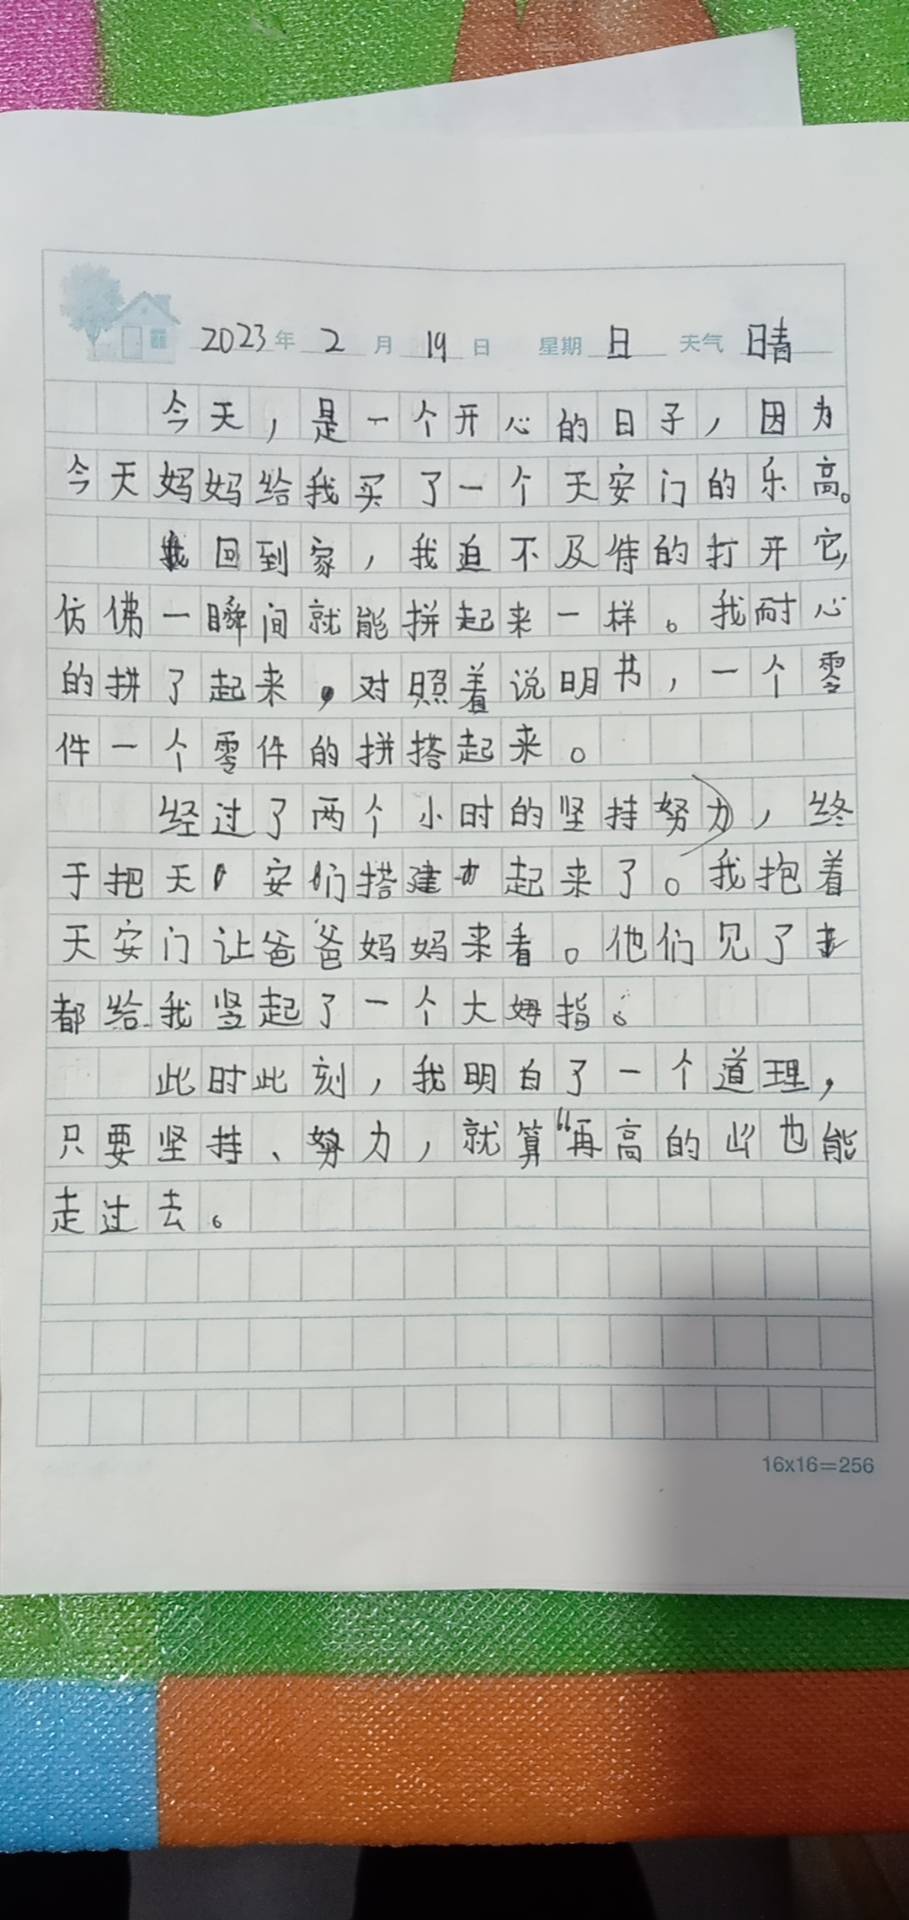 2023年 2月 19日 星期日 天气 晴
今天，是一个开心的日子，因为
今天妈妈给我买了一个天安门的乐高。
回到家，我迫不及待的打开它，
仿佛一瞬间就能拼起来一样。我耐心
的拼了起来，对照着说明书，一个零
件一个零件的拼搭起来。
经过了两个小时的坚持努力，终
于把天安们搭建起来了。我抱着
天安门让爸爸妈妈来看。他们见了
都给我竖起了一个大姆指。
此时此刻，我明白了一个道理，
只要坚持、努力，就算“再高的山也能
走过去。
16x16=256